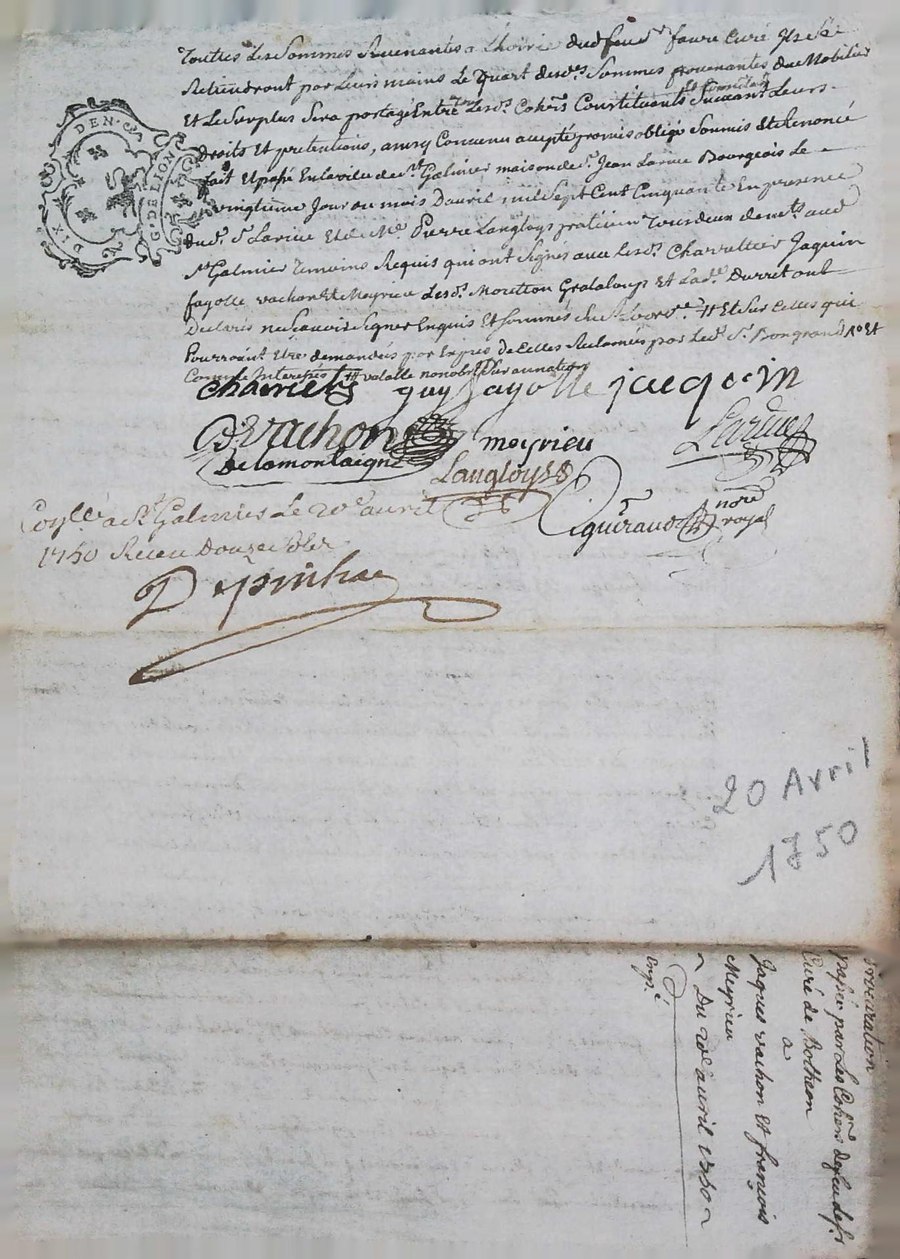 DIX DEN. G. DE LION
Touttes Les Sommes Revenantes a L'hoirie dud feu sr faure Curé Ils Se
Retiendront par Leurs mains Le Quart desd.es Sommes provenantes du Mobilier
Et Le Surplus Sera partagé Entre Lesd.s Cohers Constituants Suivant Leurs
droits Et pretentions, ainsy Convenu accepté promis obligé Soumis Et Renoncé
fait Et passé En la ville de St Galmier maison de sr Jean Larue Bourgeois Le
vingtieme Jour du mois D'avril mil Sept Cent Cinquante En presence
dud. Sr Larue Et de Me Pierre Langloys praticien Tous deux dem.ts aud
St Galmier Temoins Requis qui ont Signés avec Lesd.s Charretier Jaquin
fayolle vachon Et Meyrieu Lesd.s Moutton Grataloup Et Lad.e Durret ont
Declarés ne Sçavoir Signer Enquis Et Sommés # Et Sur Celles qui
Pourroient Etre demandées par Exprès de Celles Reclamés par Led. Sr Bongrand
Comme Interests # valable nonobst
Charretier guy fayolle jacquin
Vachon meyrieu Larue
Delamontaigne Langloys
guiraud nore
royal
Con.lé a St Galmier Le 20e avril
1750 Reçu Douze sols
Depinhac
20 Avril
1750
Procuration
passée par Les Cohers de feu le sr
Curé de Botheon
a
Jaques vachon Et françois
Meyrieu
~ Du 20e avril 1750 ~
Exp.é